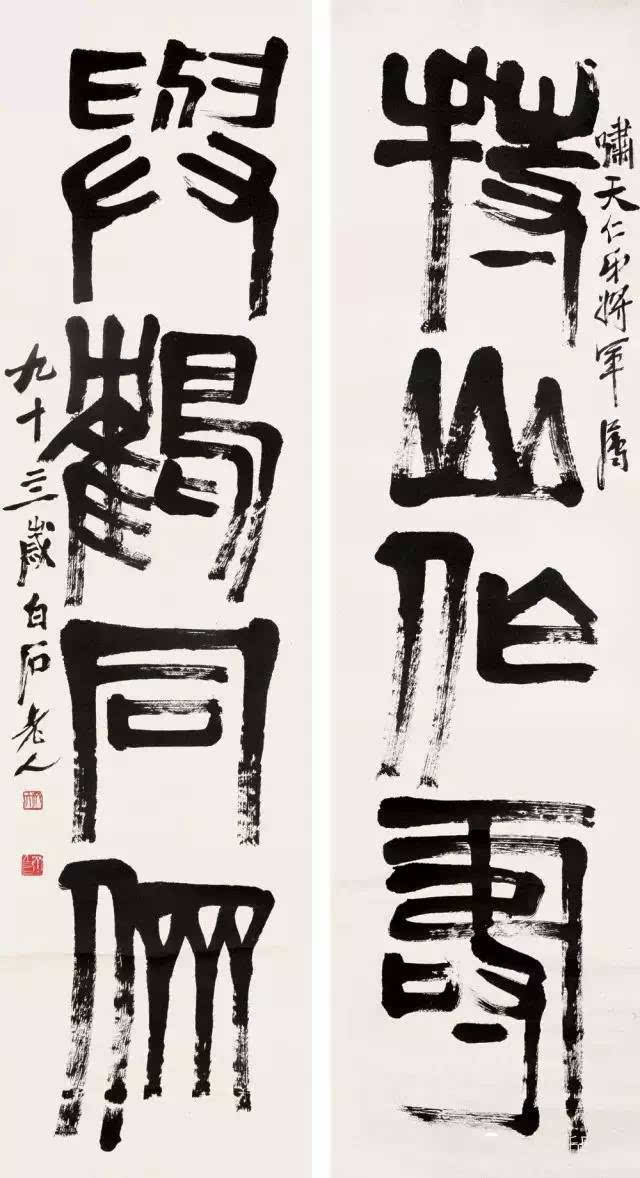 嘯天仁弟將軍屬
特山作壽
與鶴同
九十三歲白石老人